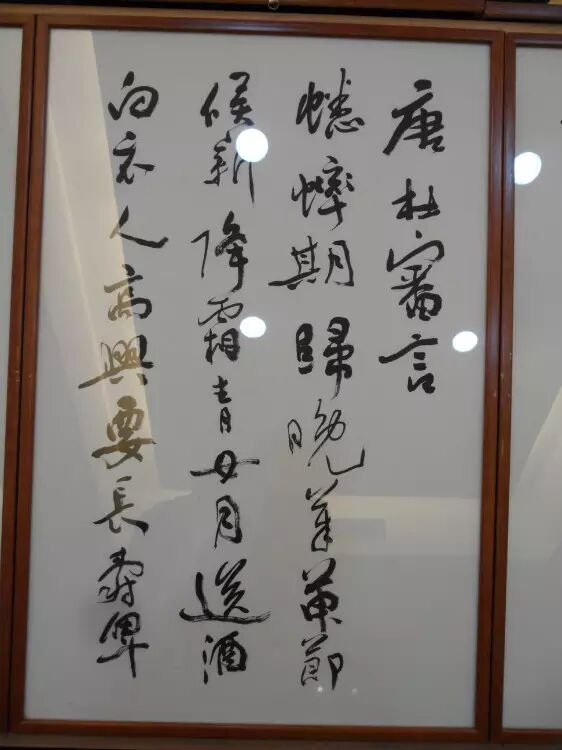 唐杜審言
蟋蟀期歸晚茱萸節
候新降霜青女月送酒
白衣人高興要長壽卑